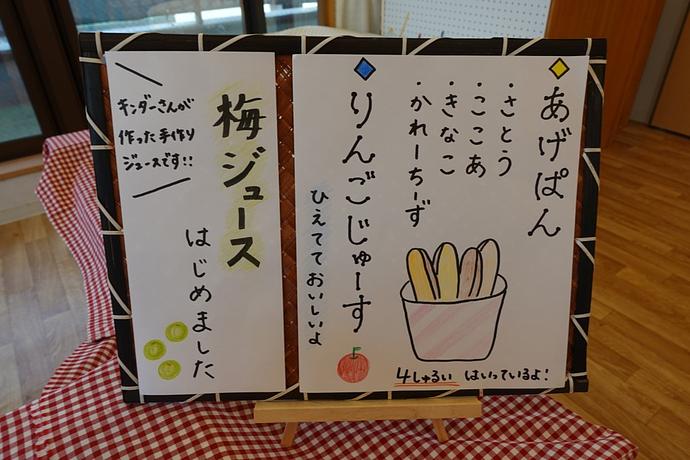 あげぱん
・さとう
・ここあ
・きなこ
・かれーちーず
4しゅるい はいっているよ!
りんごじゅーす
ひえてておいしいよ
梅ジュース
はじめました
キンダーさんが
作った手作り
ジュースです!!